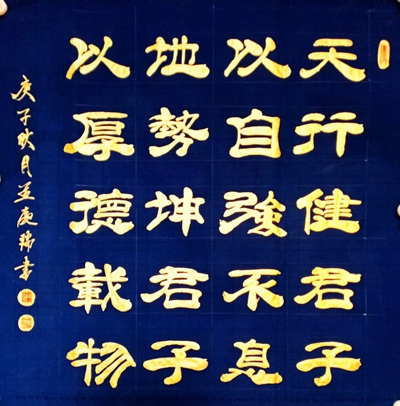 天行健君子
以自強不息
地勢坤君子
以厚德載物
庚子秋月吴庆瑞書